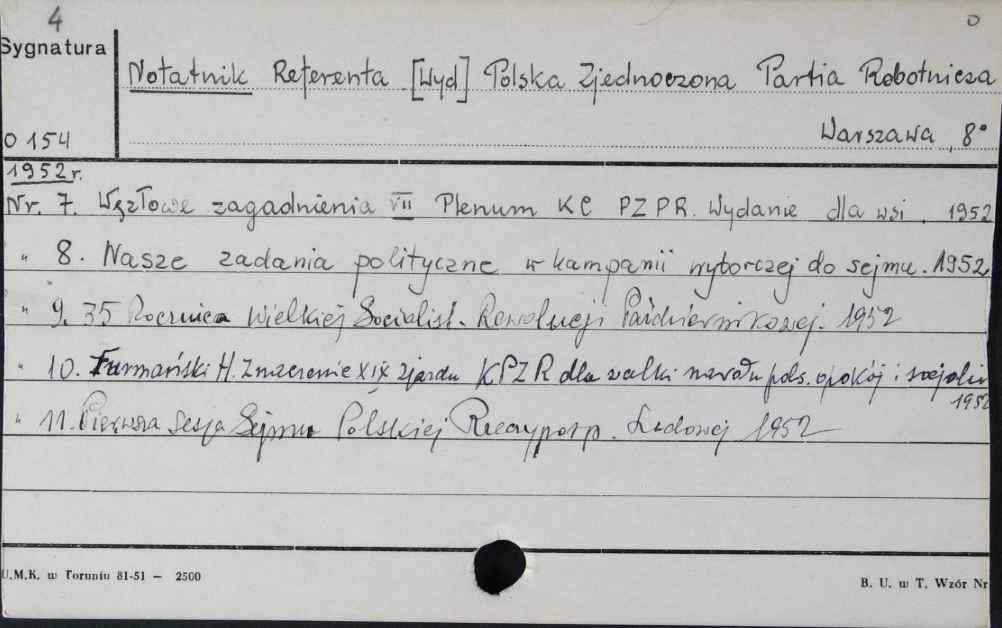 4 0
Sygnatura
Notatnik Referenta [Wyd] Polska Zjednoczona Partia Robotnicza
O 154 Warszawa, 8°
1952r.
Nr. 7. Węzłowe zagadnienia VII Plenum KC PZPR. Wydanie dla wsi. 1952
" 8. Nasze zadania polityczne w kampanii wyborczej do sejmu. 1952
" 9. 35 Rocznica Wielkiej Socialist. Rewolucji Październikowej. 1952
" 10. Furmański H. Znaczenie XIX zjazdu KPZR dla walki narodu pols. o pokój i socjaliz
1952
" 11. Pierwsza Sesja Sejmu Polskiej Rzeczyposp. Ludowej 1952
U.M.K. w Toruniu 81-51 — 2500 B. U. w T. Wzór Nr